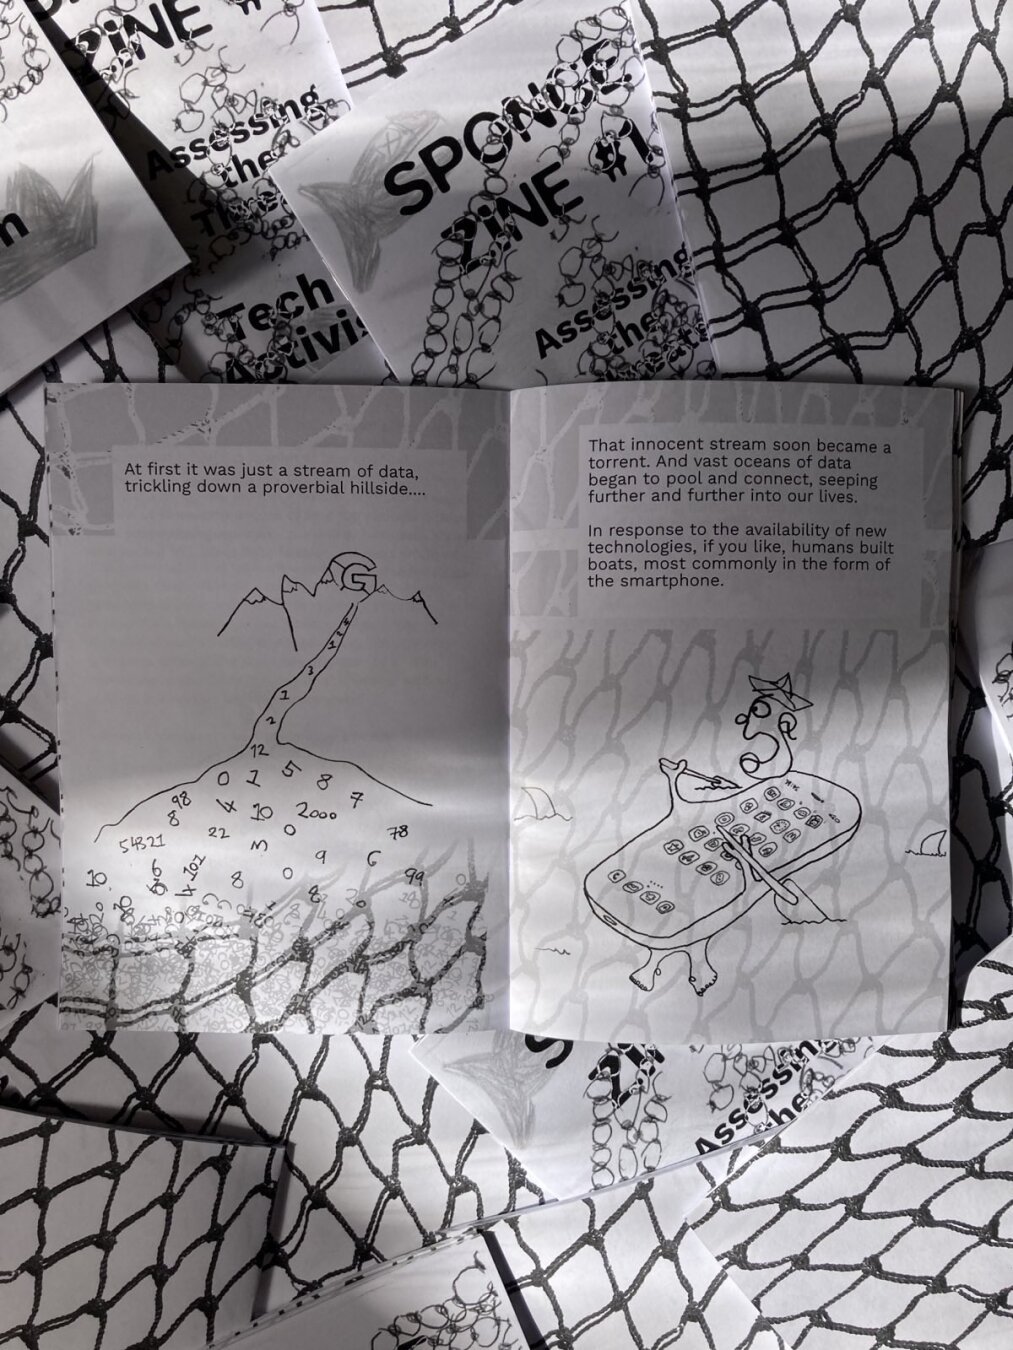 ZINE
Assessing
the
Tech
n
SPONGE
ZINE #1
Assessing
the
At first it was just a stream of data,
trickling down a proverbial hillside....
G
1
3
1
2
12
0 1 5 8
98 4 10 2000 7
8
54321 22 0 78
m
6 101 9 6
10 8 0 99
4 8
That innocent stream soon became a
torrent. And vast oceans of data
began to pool and connect, seeping
further and further into our lives.
In response to the availability of new
technologies, if you like, humans built
boats, most commonly in the form of
the smartphone.
Assessing
the